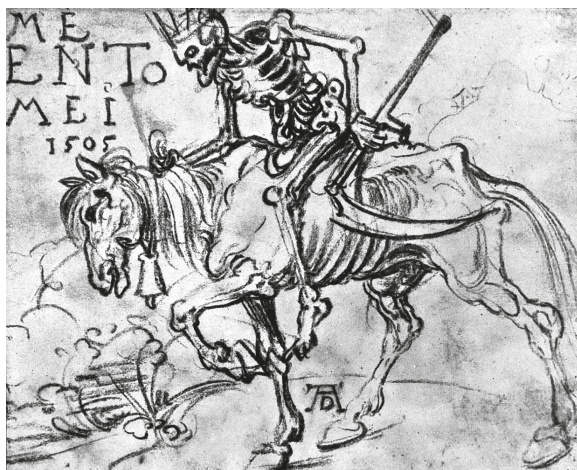 ME
ENTO
MEI
1505
AD